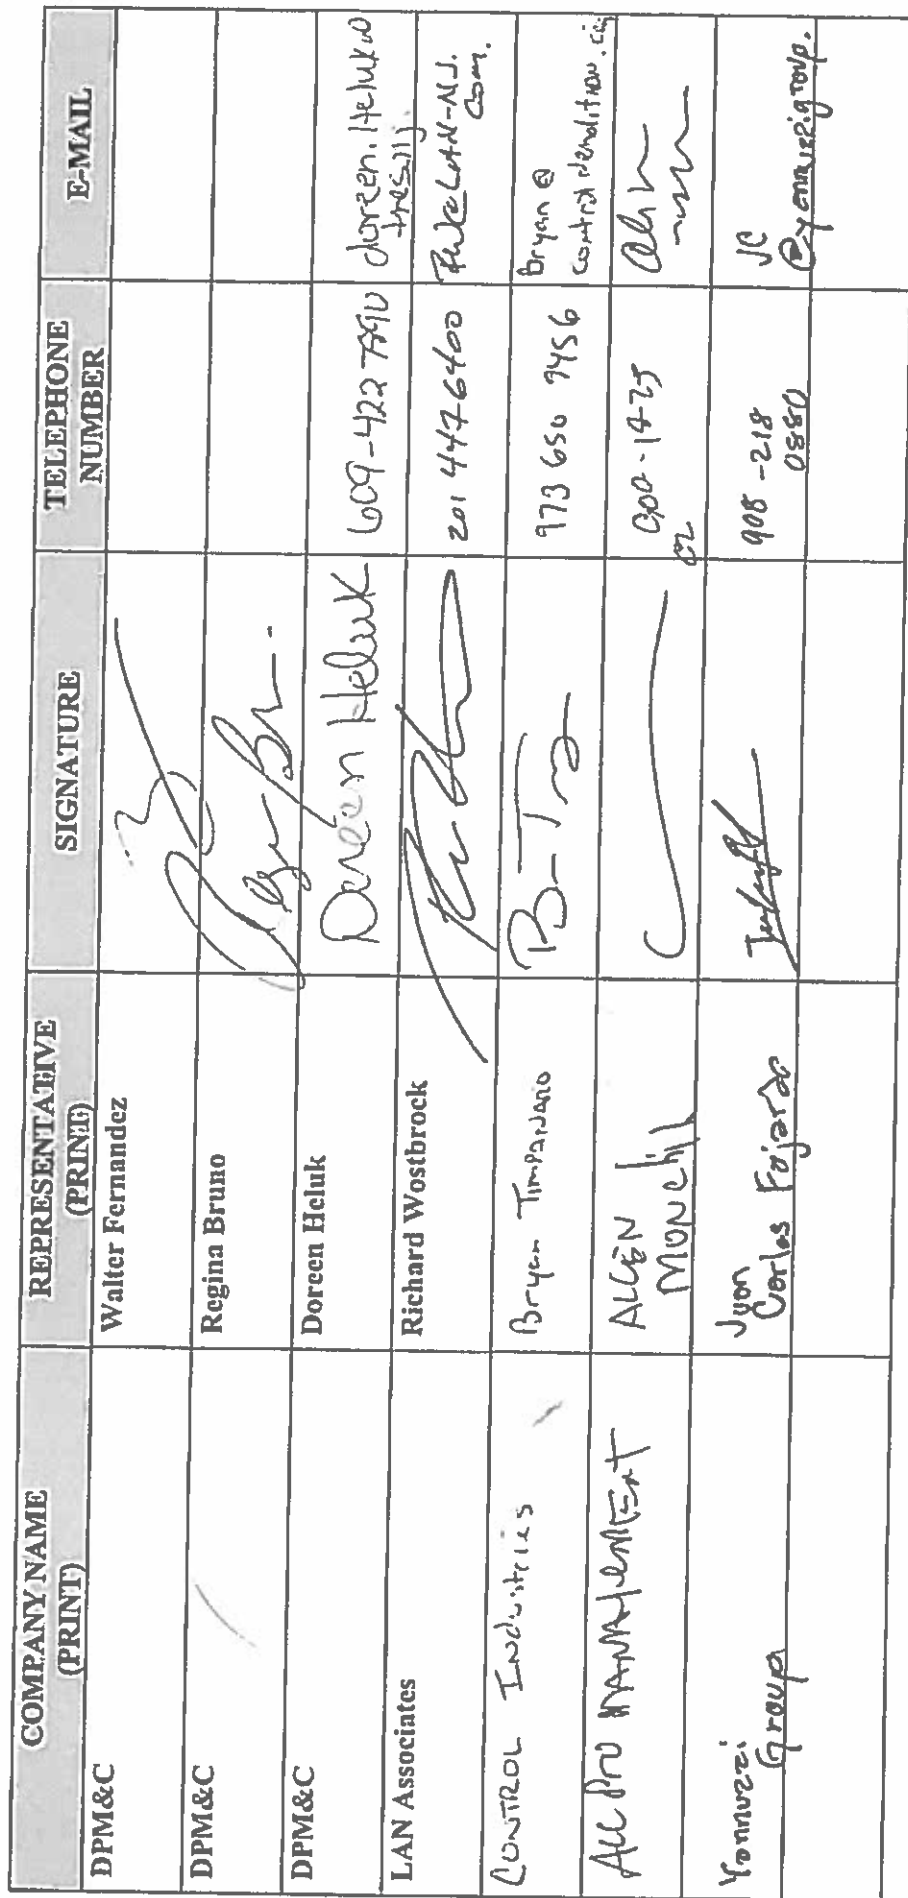 COMPANY NAME
(PRINT)
REPRESENTATIVE
(PRINT)
SIGNATURE
TELEPHONE
NUMBER
E-MAIL
DPM&C
Walter Fernandez
DPM&C
Regina Bruno
DPM&C
Doreen Heluk
Doreen Heluk
609-422
doreen.heluk@
LAN Associates
Richard Wostbrock
201 447 6400
LAN-NJ.
Com.
CONTROL Industries
Bryan Timpanaro
973 650 9456
bryan@
controldemolition.co
ALL PRO MANAGEMENT
ALLEN
Yannuzzi
Group
Juan
Carlos Fajardo
908-218
0880
JC
@yannuzzigroup.